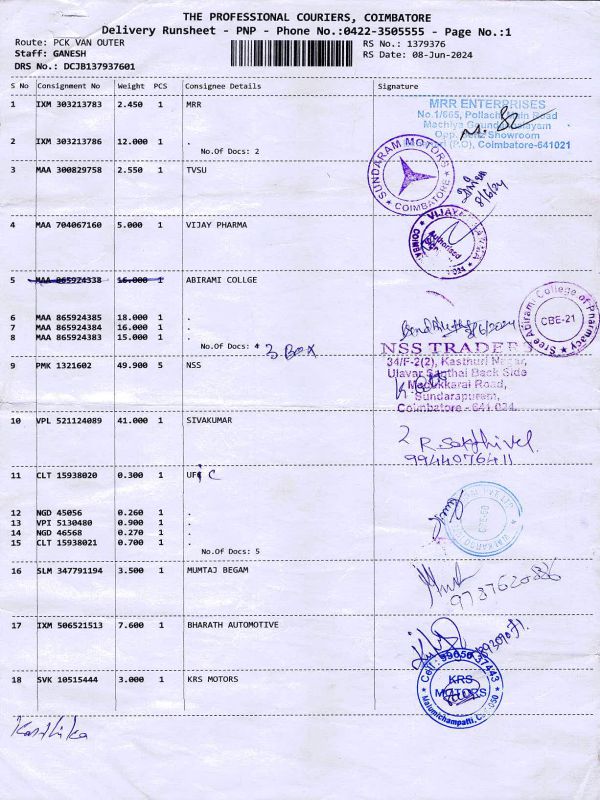 THE PROFESSIONAL COURIERS, COIMBATORE
Delivery Runsheet - PNP - Phone No.:0422-3505555 - Page No.:1
Route: PCK VAN OUTER RS No.: 1379376
Staff: GANESH RS Date: 08-Jun-2024
DRS No.: DCJB137937601
S No Consignment No Weight PCS Consignee Details Signature
1 IXM 303213783 2.450 1 MRR
MRR ENTERPRISES
No.1/665, Pollachi Main Road
Machiya Goundenpalayam
Opp. Benz Showroom
(P.O), Coimbatore-641021
2 IXM 303213786 12.000 1 .
No.Of Docs: 2
3 MAA 300829758 2.550 1 TVSU
SUNDARAM MOTORS
COIMBATORE
8/6/24
4 MAA 704067160 5.000 1 VIJAY PHARMA
Authorised
5 MAA 865924338 16.000 1 ABIRAMI COLLGE
Sree Abirami College of Pharmacy
CBE-21
6 MAA 865924385 18.000 1 .
7 MAA 865924384 16.000 1 .
8 MAA 865924383 15.000 1 .
No.Of Docs: 4 3 Box
8/6/2024
9 PMK 1321602 49.900 5 NSS
NSS TRADERS
34/F-2(2), Kasthuri Nagar,
Ulavar Santhai Back Side
Madukkarai Road,
Sundarapuram,
Coimbatore - 641 024.
10 VPL 521124089 41.000 1 SIVAKUMAR
2 R. Sakthivel.
9944076411
11 CLT 15938020 0.300 1 UFIC
12 NGD 45056 0.260 1 .
13 VPI 5130480 0.900 1 .
14 NGD 46568 0.270 1 .
15 CLT 15938021 0.700 1 .
No.Of Docs: 5
CBE-50
16 SLM 347791194 3.500 1 MUMTAJ BEGAM
9737620836
17 IXM 506521513 7.600 1 BHARATH AUTOMOTIVE
18 SVK 10515444 3.000 1 KRS MOTORS
Cell: 99650 37443
KRS
MOTORS
Malumichampatti, Cbe-050
Karthika